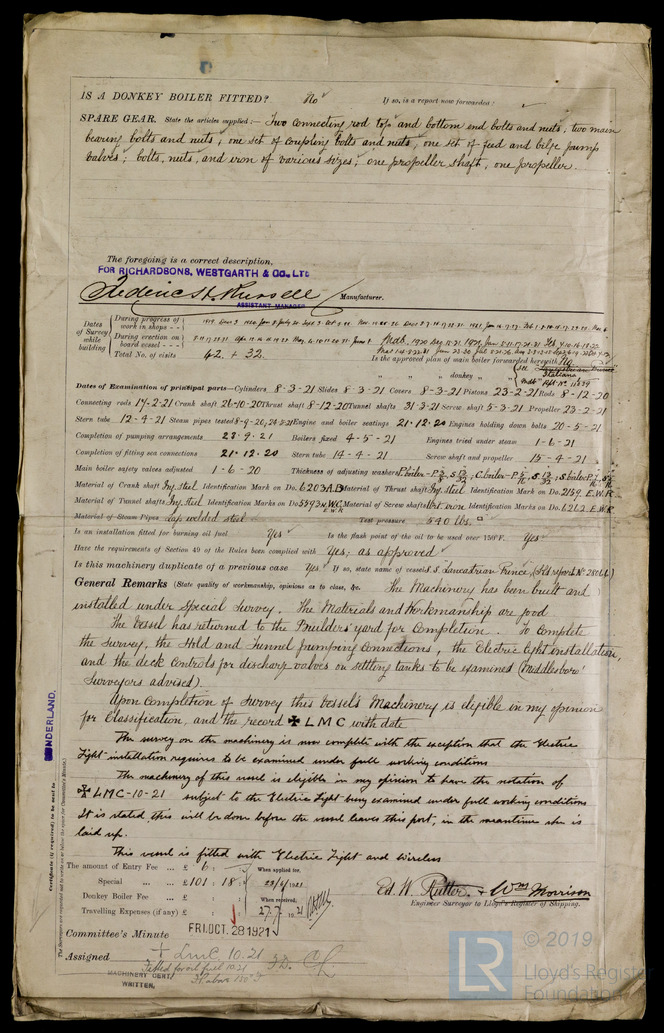 IS A DONKEY BOILER FITTED? No If so, is a report now forwarded?
SPARE GEAR. State the articles supplied:— Two connecting rod top and bottom end bolts and nuts, two main
bearing bolts and nuts, one set of coupling bolts and nuts, one set of feed and bilge pump
valves, bolts, nuts, and iron of various sizes, one propeller shaft, one propeller.
The foregoing is a correct description,
FOR RICHARDSONS, WESTGARTH & CO., LTD
Frederic H. Russell Manufacturer.
ASSISTANT MANAGER
Dates of Survey while building
During progress of work in shops - -
During erection on board vessel - - -
Total No. of visits 42 + 32. Is the approved plan of main boiler forwarded herewith No
" " " donkey " "
Dates of Examination of principal parts—Cylinders 8-3-21 Slides 8-3-21 Covers 8-3-21 Pistons 23-2-21 Rods 8-12-20
Connecting rods 17-2-21 Crank shaft 26-10-20 Thrust shaft 8-12-20 Tunnel shafts 31-3-21 Screw shaft 5-3-21 Propeller 23-2-21
Stern tube 12-4-21 Steam pipes tested Engine and boiler seatings 21-12-20 Engines holding down bolts 20-5-21
Completion of pumping arrangements 28-9-21 Boilers fixed 4-5-21 Engines tried under steam 1-6-21
Completion of fitting sea connections 21-12-20 Stern tube 14-4-21 Screw shaft and propeller 15-4-21
Main boiler safety valves adjusted 1-6-20 Thickness of adjusting washers
Material of Crank shaft Ing. Steel Identification Mark on Do. 6203 A.B. Material of Thrust shaft Ing. Steel Identification Mark on Do. 2159 E.W.R
Material of Tunnel shafts Ing. Steel Identification Marks on Do. Material of Screw shafts Wrt. iron Identification Marks on Do. 6262 E.W.R
Material of Steam Pipes Lap welded steel Test pressure 540 lbs.
Is an installation fitted for burning oil fuel Yes Is the flash point of the oil to be used over 150°F. Yes
Have the requirements of Section 49 of the Rules been complied with Yes; as approved
Is this machinery duplicate of a previous case Yes If so, state name of vessel S.S. Lancastrian Prince,
General Remarks (State quality of workmanship, opinions as to class, &c. The Machinery has been built and
installed under Special Survey. The Materials and Workmanship are good.
The Vessel has returned to the Builders' yard for Completion. To Complete
the Survey, the Hold and Tunnel pumping Connections, the Electric light installation,
and the deck controls for discharge valves on settling tanks to be examined (Middlesboro'
Surveyors advised).
Upon Completion of Survey this Vessel's Machinery is eligible in my opinion
for Classification, and the record ✠ LMC with date
The survey on the machinery is now complete with the exception that the Electric
Light installation requires to be examined under full working conditions
The machinery of this vessel is eligible in my opinion to have the notation of
✠ LMC-10-21 subject to the Electric Light being examined under full working conditions
It is stated, this will be done before the vessel leaves this port, in the meantime she is
laid up.
This vessel is fitted with Electric Light and Wireless
The amount of Entry Fee ... £ 6 : When applied for,
Special ... £ 101 : 18 :
Donkey Boiler Fee ... £ When received,
Travelling Expenses (if any) £ 27.7 10.21
Ed. W. Rutter. + Wm Morrison
Engineer Surveyor to Lloyd's Register of Shipping.
Committee's Minute FRI. OCT. 28 1921
Assigned + LMC 10.21
Fitted for oil fuel 10.21
F.P. above 150°F
MACHINERY CERT.
WRITTEN.
SUNDERLAND.
Certificate (if required) to be sent to
© 2019
LR
Lloyd's Register
Foundation